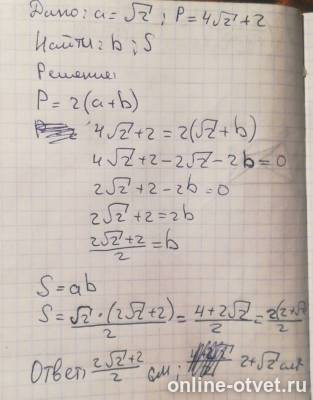 Дано: a = √2; P = 4√2 + 2
Найти: b; S
Решение:
P = 2(a+b)
4√2 + 2 = 2(√2 + b)
4√2 + 2 - 2√2 - 2b = 0
2√2 + 2 - 2b = 0
2√2 + 2 = 2b
(2√2 + 2)/2 = b
S = ab
S = (√2 · (2√2 + 2))/2 = (4 + 2√2)/2 = (2(2 + √2))/2
Ответ: (2√2 + 2)/2 см; 2 + √2 см²
online-otvet.ru